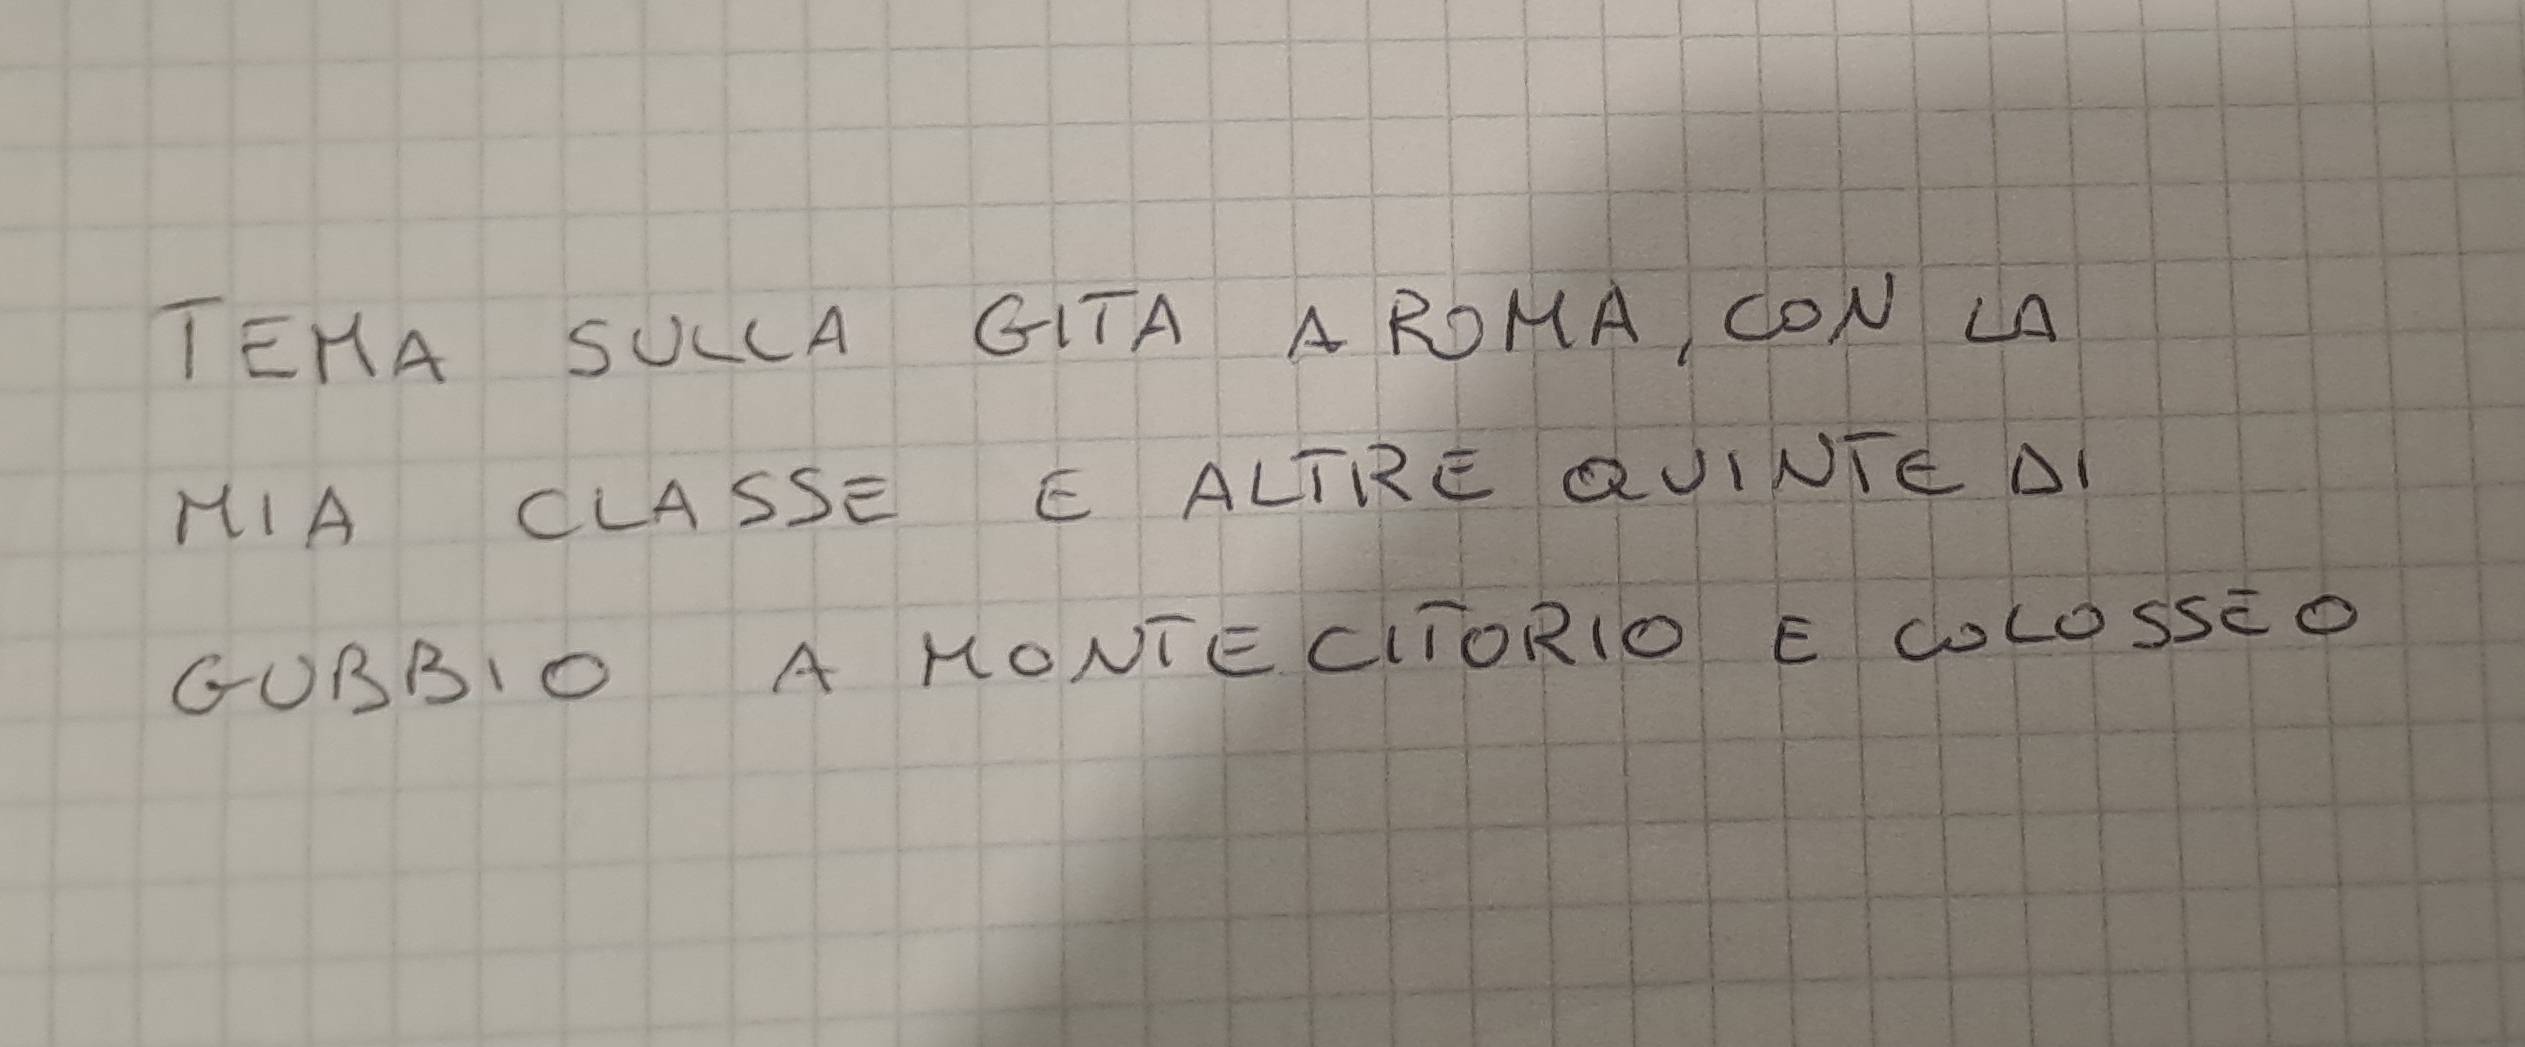 TEMA SULLA GITA A ROMA, CON LA
MIA CLASSE E ALTRE QUINTE DI
GUBBIO A MONTECITORIO E COLOSSEO